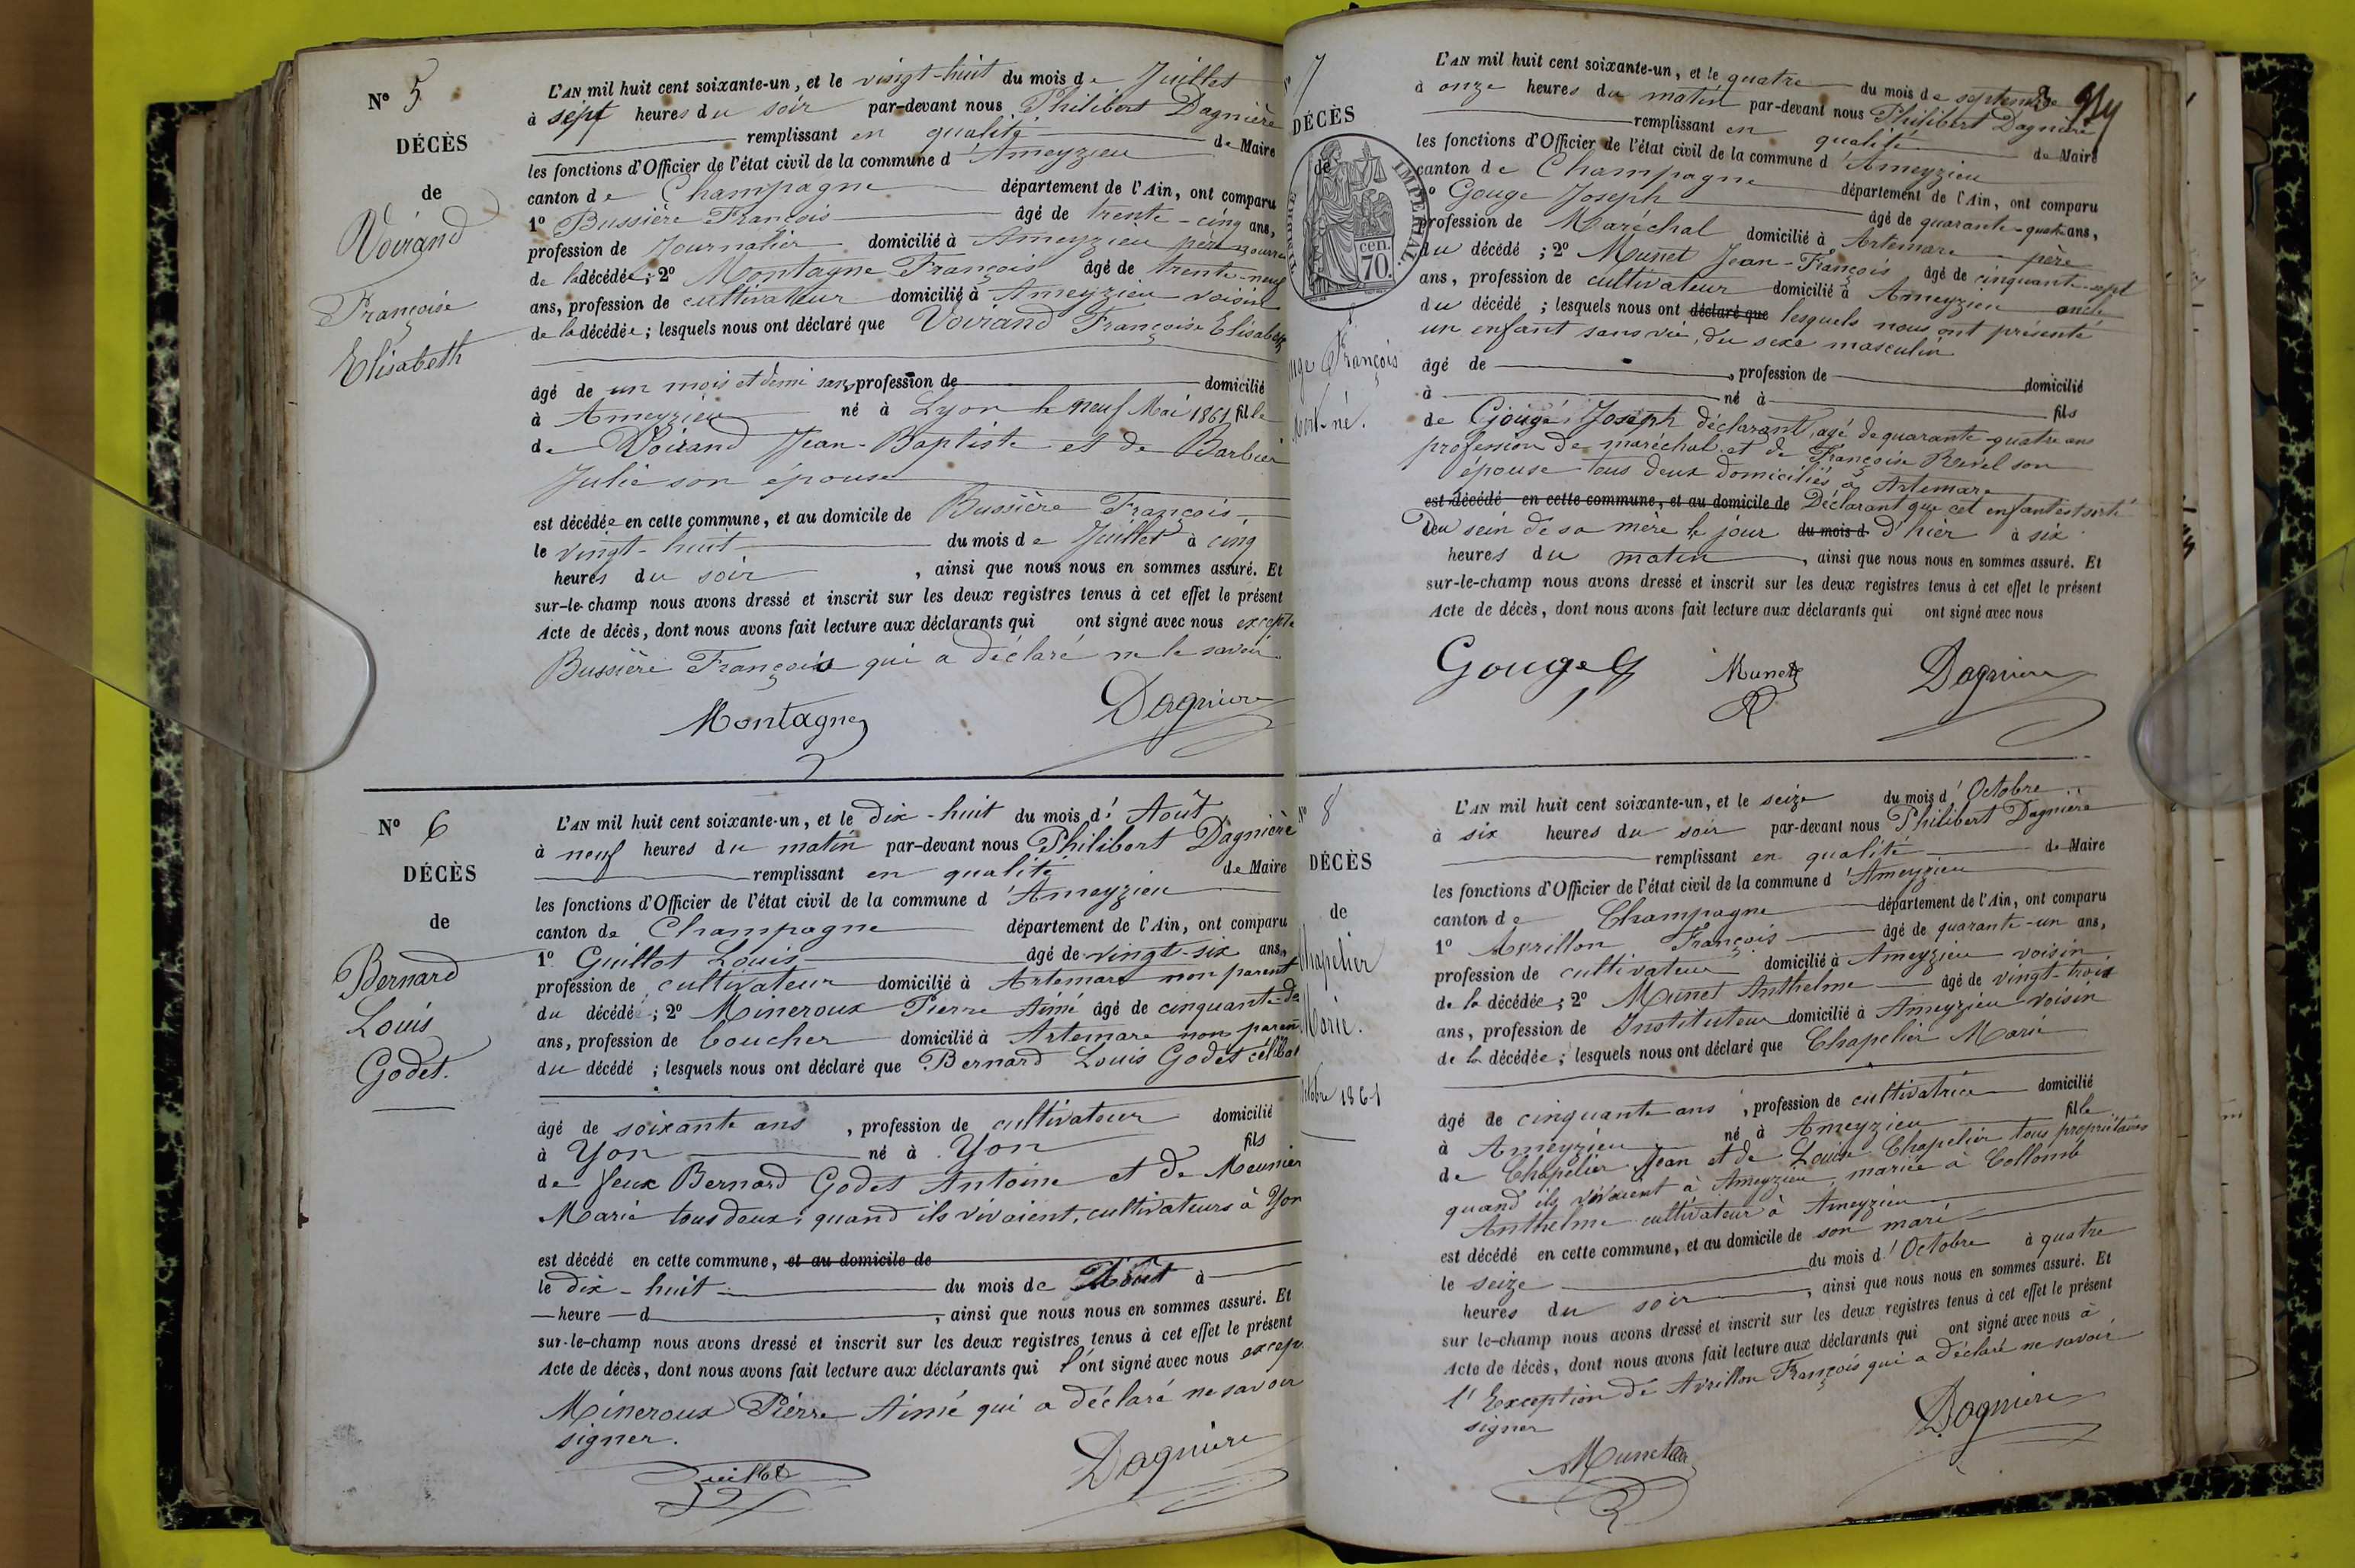 N° 5
DÉCÈS
de
Voirand
Françoise
Elisabeth
L'AN mil huit cent soixante-un, et le vingt-huit du mois de Juillet
à sept heures du soir par-devant nous Philibert Dagnière
remplissant en qualité de Maire
les fonctions d'Officier de l'état civil de la commune d'Ameyzieu
canton de Champagne département de l'Ain, ont comparu
1° Bussière François âgé de trente-cinq ans,
profession de Journalier domicilié à Ameyzieu père nourri
de la décédée; 2° Montagne François âgé de trente-neuf
ans, profession de cultivateur domicilié à Ameyzieu voisin
de la décédée; lesquels nous ont déclaré que Voirand Françoise Elisabeth
âgé de un mois et demi sans profession de domicilié
à Ameyzieu né à Lyon le neuf Mai 1861 fille
de Voirand Jean-Baptiste et de Barbier
Julie son épouse
est décédée en cette commune, et au domicile de Bussière François
le vingt-huit du mois de Juillet à cinq
heures du soir, ainsi que nous nous en sommes assuré. Et
sur-le-champ nous avons dressé et inscrit sur les deux registres tenus à cet effet le présent
Acte de décès, dont nous avons fait lecture aux déclarants qui ont signé avec nous excepté
Bussière François qui a déclaré ne le savoir.
Montagne Dagnière
N° 6
DÉCÈS
de
Bernard
Louis
Godet.
L'AN mil huit cent soixante-un, et le dix-huit du mois d'Août
à neuf heures du matin par-devant nous Philibert Dagnière
remplissant en qualité de Maire
les fonctions d'Officier de l'état civil de la commune d'Ameyzieu
canton de Champagne département de l'Ain, ont comparu
1° Guillot Louis âgé de vingt-six ans,
profession de cultivateur domicilié à Artemare non parent
du décédé; 2° Mineroux Pierre Aimé âgé de cinquante-de
ans, profession de boucher domicilié à Artemare non parent
du décédé; lesquels nous ont déclaré que Bernard Louis Godet célibat
âgé de soixante ans, profession de cultivateur domicilié
à Yon né à Yon fils
de feux Bernard Godet Antoine et de Meunier
Marie tous deux, quand ils vivaient, cultivateurs à Yon
est décédé en cette commune, et au domicile de
le dix-huit du mois de Août à
heure d, ainsi que nous nous en sommes assuré. Et
sur-le-champ nous avons dressé et inscrit sur les deux registres tenus à cet effet le présent
Acte de décès, dont nous avons fait lecture aux déclarants qui l'ont signé avec nous excep
Mineroux Pierre Aimé qui a déclaré ne savoir
signer.
Guillot Dagnière
7
DÉCÈS
de
TIMBRE IMPÉRIAL
70 cen.
uge François
mort-né.
L'AN mil huit cent soixante-un, et le quatre du mois de septembre
à onze heures du matin par-devant nous Philibert Dagnière
remplissant en qualité de Maire
les fonctions d'Officier de l'état civil de la commune d'Ameyzieu
canton de Champagne département de l'Ain, ont comparu
1° Gouge Joseph âgé de quarante-quatre ans,
profession de Maréchal domicilié à Artemare père
du décédé; 2° Munet Jean-François âgé de cinquante-sept
ans, profession de cultivateur domicilié à Ameyzieu oncle
du décédé; lesquels nous ont déclaré que lesquels nous ont présenté
un enfant sans vie, du sexe masculin
âgé de, profession de domicilié
à né à fils
de Gouge Joseph déclarant, agé de quarante-quatre ans
profession de maréchal et de Françoise Revel son
épouse tous deux domiciliés à Artemare
est décédé en cette commune, et au domicile de Déclarant que cet enfant est sorti
du sein de sa mère le jour du mois d d'hier à six
heures du matin, ainsi que nous nous en sommes assuré. Et
sur-le-champ nous avons dressé et inscrit sur les deux registres tenus à cet effet le présent
Acte de décès, dont nous avons fait lecture aux déclarants qui ont signé avec nous
Gouge Munet Dagnière
N° 8
DÉCÈS
de
Chapelier
Marie.
Octobre 1861
L'AN mil huit cent soixante-un, et le seize du mois d'Octobre
à six heures du soir par-devant nous Philibert Dagnière
remplissant en qualité de Maire
les fonctions d'Officier de l'état civil de la commune d'Ameyzieu
canton de Champagne département de l'Ain, ont comparu
1° Avrillon François âgé de quarante-un ans,
profession de cultivateur domicilié à Ameyzieu voisin
de la décédée; 2° Munet Anthelme âgé de vingt-trois
ans, profession de Instituteur domicilié à Ameyzieu voisin
de la décédée; lesquels nous ont déclaré que Chapelier Marie
âgé de cinquante ans, profession de cultivatrice domicilié
à Ameyzieu né à Ameyzieu fille
de Chapelier Jean et de Louise Chapelier tous propriétaires
quand ils vivaient à Ameyzieu, mariée à Collomb
Anthelme cultivateur à Ameyzieu
est décédé en cette commune, et au domicile de son mari
le seize du mois d'Octobre à quatre
heures du soir, ainsi que nous nous en sommes assuré. Et
sur le-champ nous avons dressé et inscrit sur les deux registres tenus à cet effet le présent
Acte de décès, dont nous avons fait lecture aux déclarants qui ont signé avec nous à
l'Exception de Avrillon François qui a déclaré ne savoir
signer
Munet Dagnière